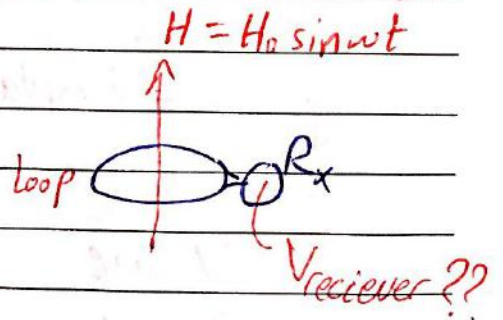 H = H₀ sinωt
loop
Rx
Vreciever ??